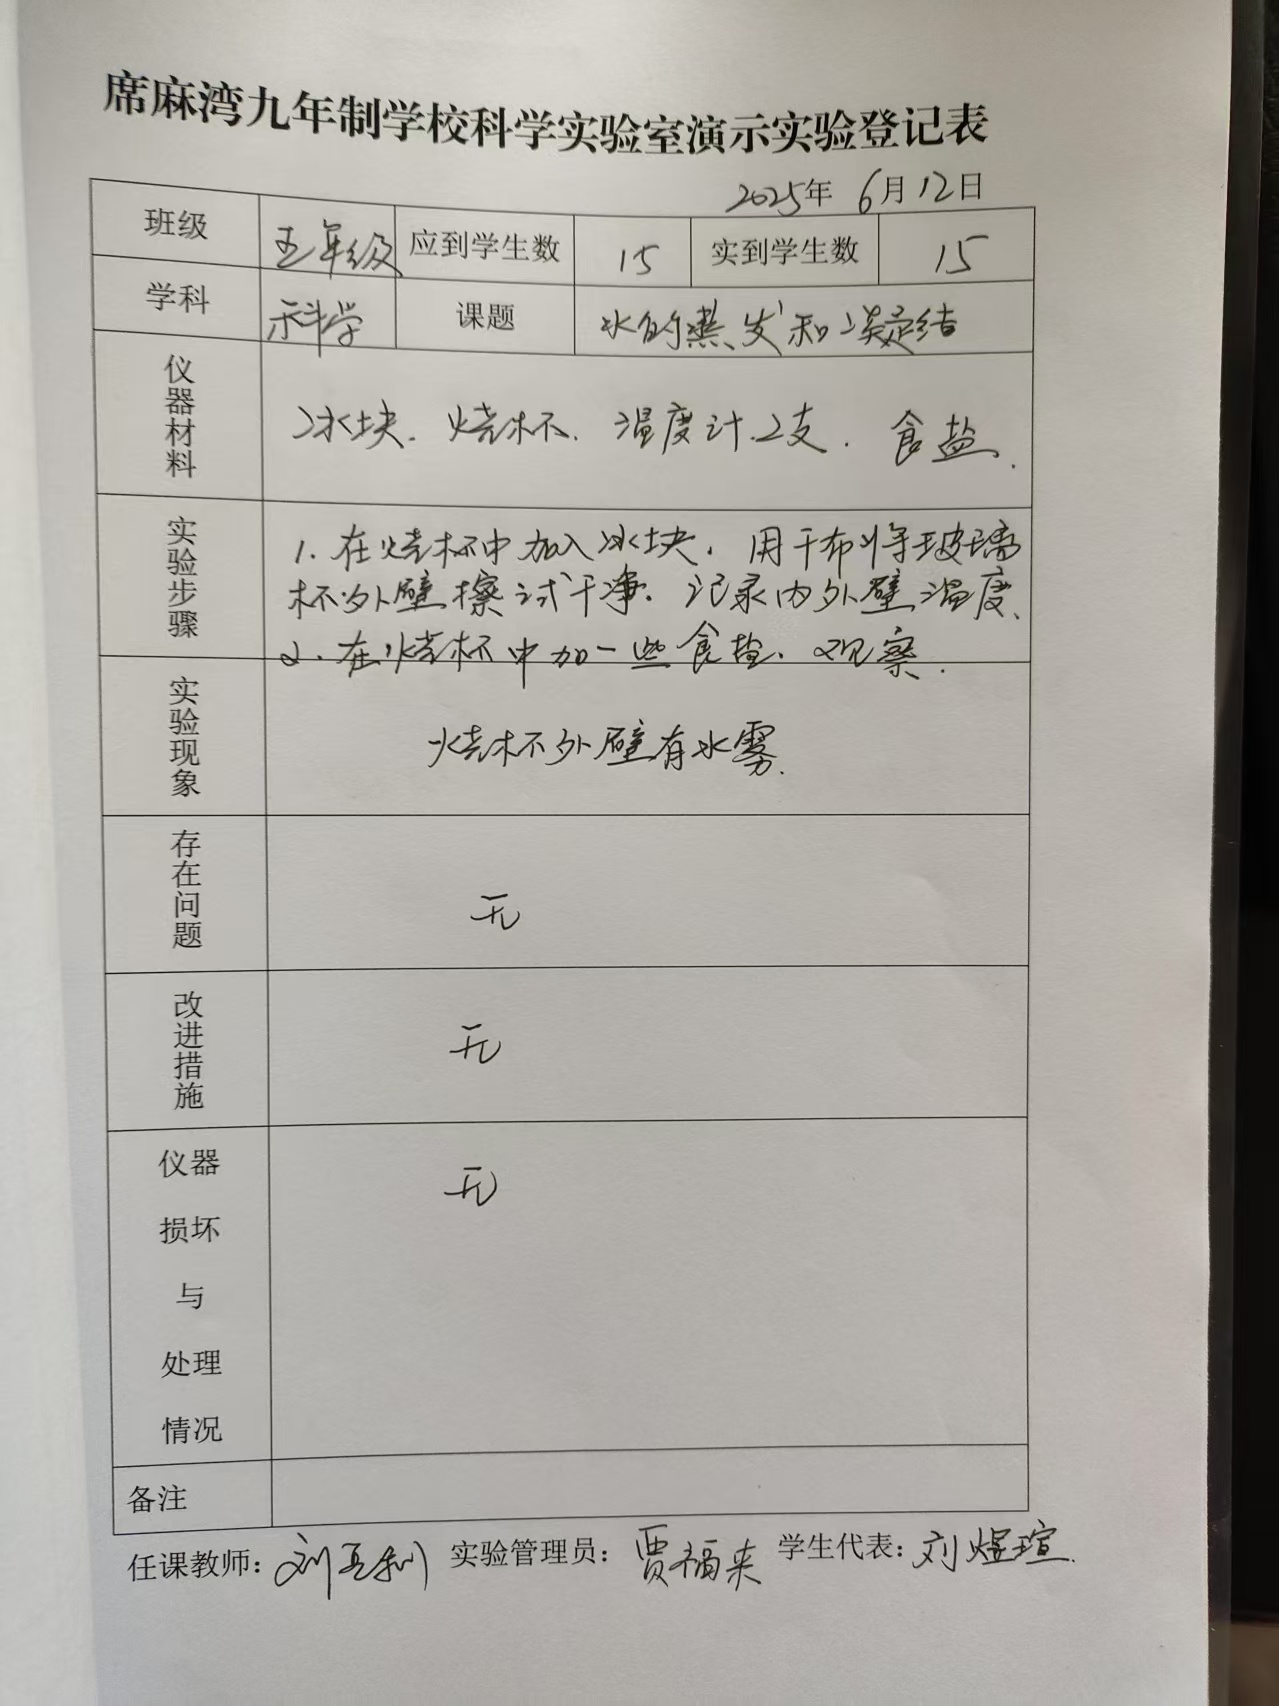 席麻湾九年制学校科学实验室演示实验登记表
2025年 6月12日
班级 五年级 应到学生数 15 实到学生数 15
学科 科学 课题 水的蒸发和凝结
仪器材料 冰块、烧杯、温度计2支、食盐.
实验步骤 1.在烧杯中加入冰块,用干布将玻璃
杯外壁擦试干净.记录内外壁温度.
2.在烧杯中加一些食盐、观察.
实验现象 烧杯外壁有水雾.
存在问题 无
改进措施 无
仪器 无
损坏
与
处理
情况
备注
任课教师: 实验管理员: 贾福来 学生代表: 刘煜瑄.